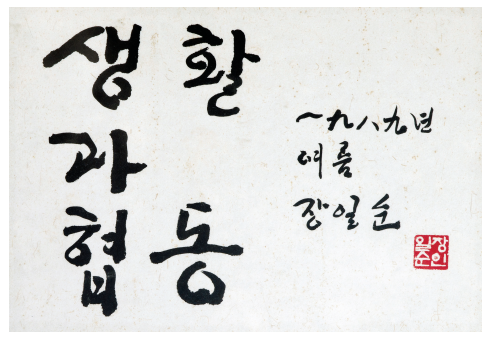 생활
과
협동
一九八九년
여름
장일순
장일순인